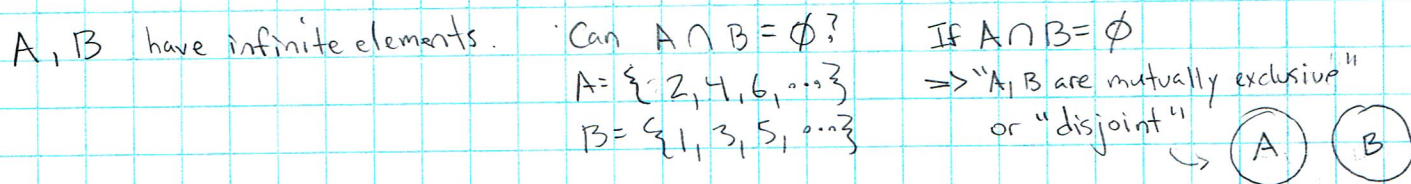 A, B have infinite elements.
Can A ∩ B = ∅?
A = {2, 4, 6, ...}
B = {1, 3, 5, ...}
If A ∩ B = ∅
=> "A, B are mutually exclusive"
or "disjoint"
↳ A B